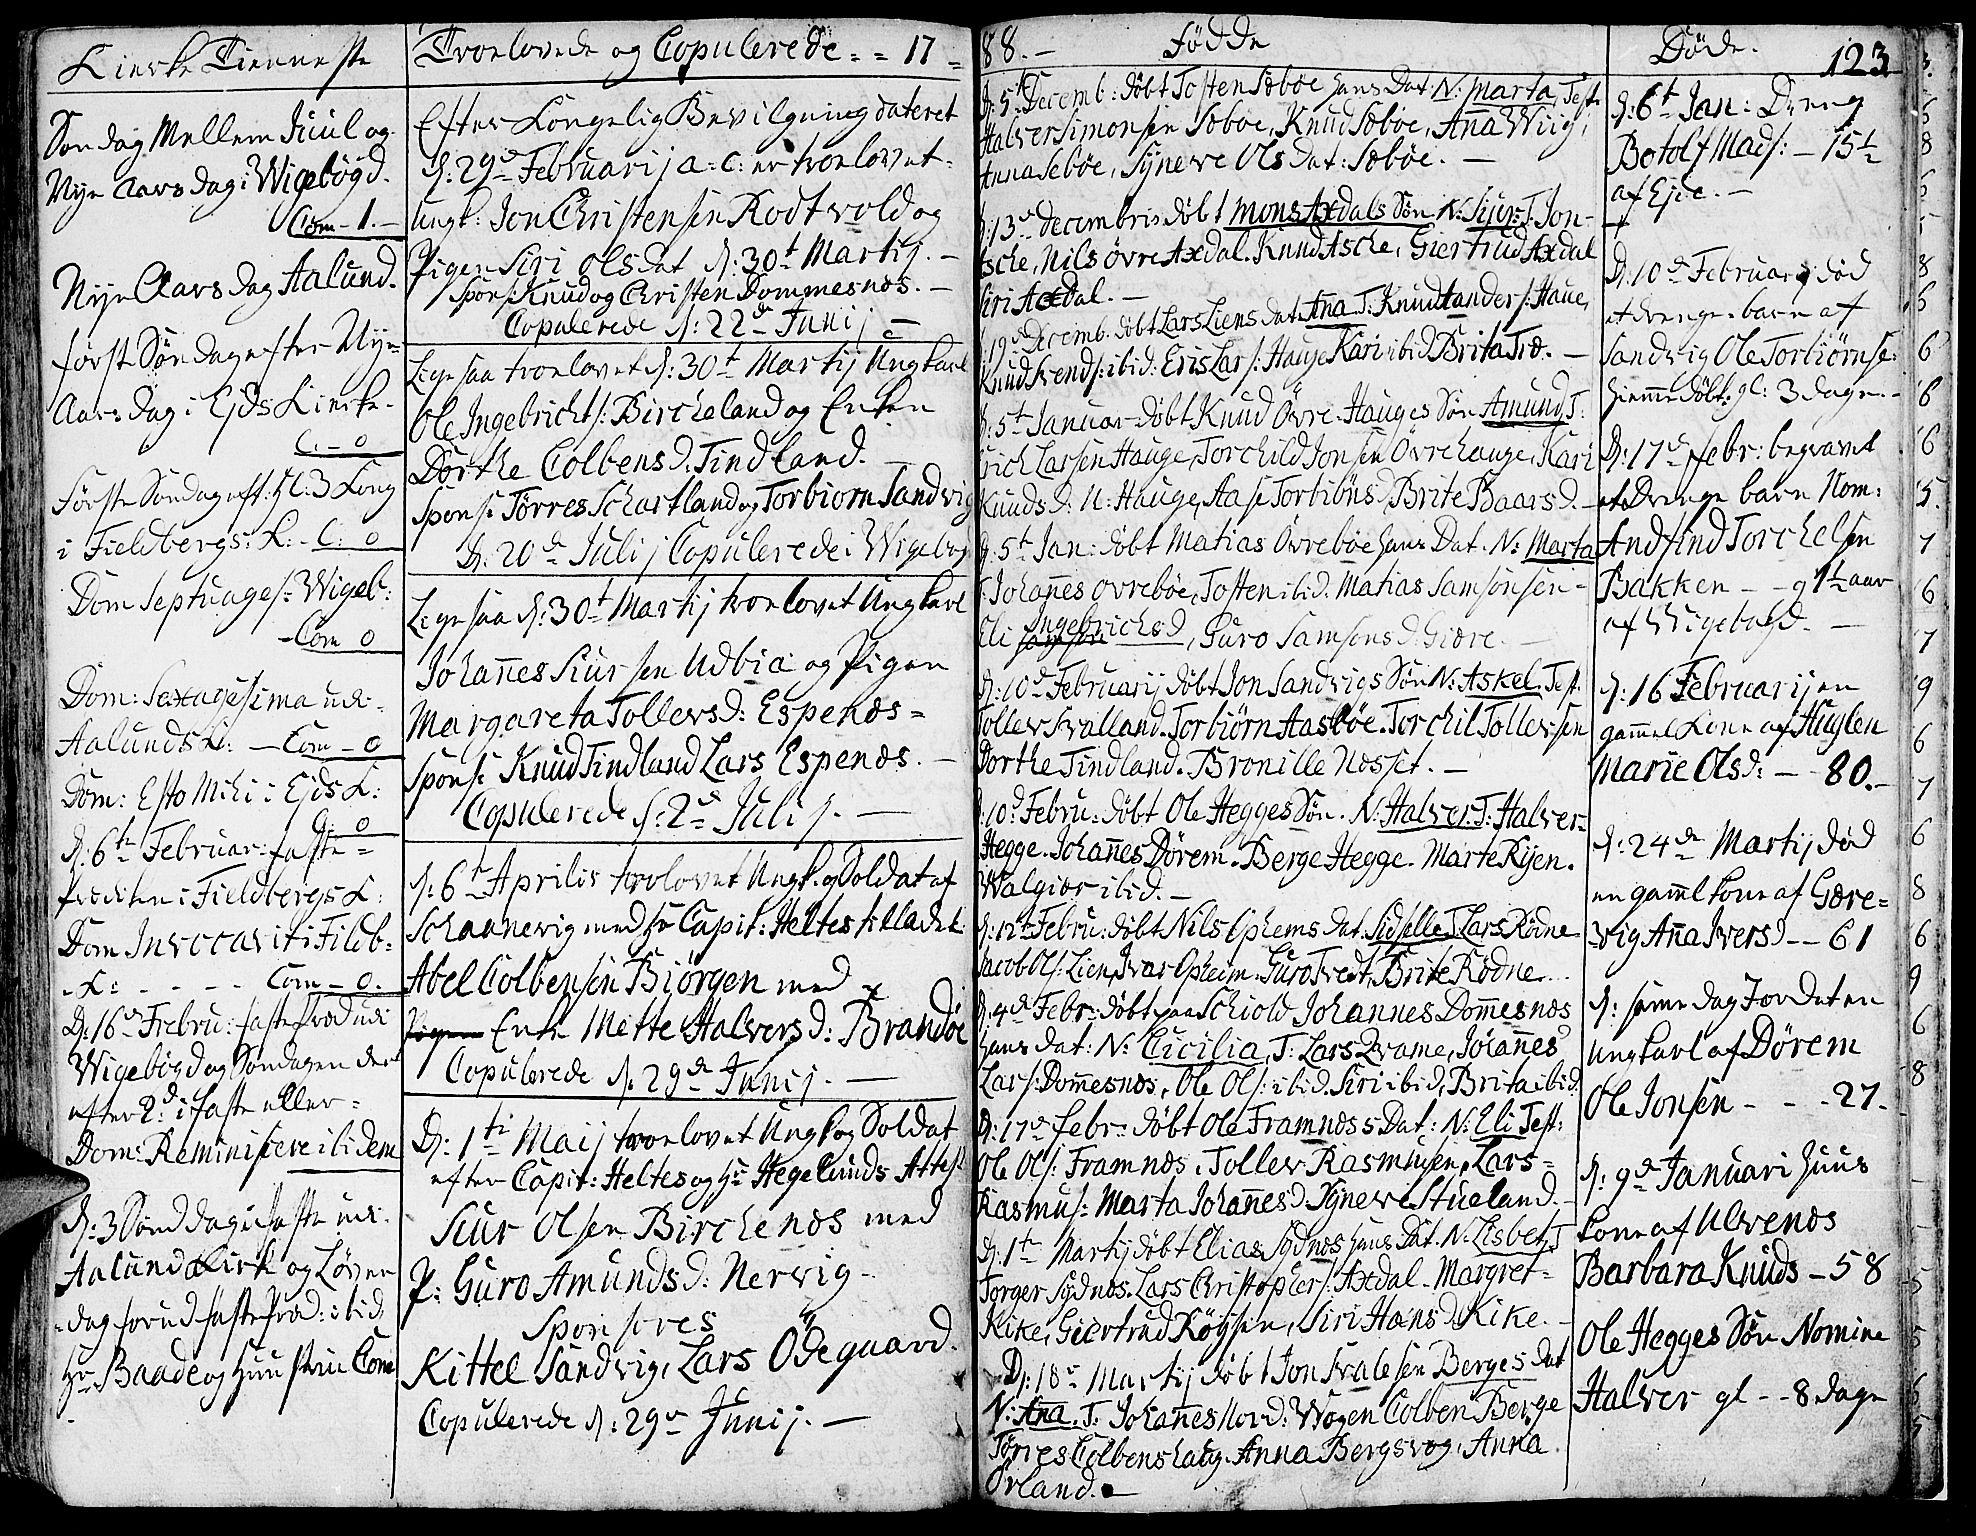 Kirke Tienneste
Søndag Mellem Juul og
Nye Aars dag i Wigebøgd.
Com - 1. -
Nye Aars dag Aalund.
først Søndag efter Nye-
Aars dag i Ejds Kirke.
C. - 0
Første Søndag eft: Hl: 3 Kong
i Fieldbergs: K: - C: 0
Dom Septuages: Wigeb:
- Com 0
Dom: Sexagesima udi
Aalunds K: - Com - 0
Dom: Esto Mihi i Ejds K:
C. 0
D: 6te Februar: faste =
Prædiken i Fieldbergs K:
Dom Invocavit i Fildb-
- K: - - - - Com - 0.
D: 16d Frebru: faste Præd udi
Wigebøgd og Søndagen der
efter 2d i faste eller =
Dom: Reminiscere ibidem
D: 3 Sønd dag i faste udi
Aalund Kirk og Løver
dag forud faste Præd: ibid
Hr Baade og Hustrue Com
Troelovede og Copulerede. = 17 =
Efter Kongelig Bevilgning dateret
D: 29d Februarij a: c: er troelovet
Ungk: Jon Christensen Rodtvold og
Pigen Siri Olsdat D: 30t Martij. -
Spons: Knud og Christen Dommesnæs. -
Copulerede D: 22d Junij -
Ligesaa troelovet D: 30t Martij Ungkarl
Ole Ingebrichts: Bircheland og Enken
Dorthe Colbensd. Tindland. -
Spons: Tørres Schartland og Torbiorn Sandvig
D: 20d Julij Copulerede i Wigebøg
Ligesaa D: 30t Martij troelovet Ungkarl
Johanes Siursen Udbia og Pigen
Margareta Tollevsd: Espenæs =
Spons: Knud Tindland Lars Espenæs. -
Copulerede D: 2d Julij. -
D: 6t Aprilis trolovet Ungk. og Soldat af
Schaanevig med Hr Capit: Heltes tilladel:
Abel Colbensen Biørgen med
Pigen Enke Mette Halversd: Brandøe
Copulerede D: 29d Junij. -
D: 1te Maij troelovet Ungk og Soldat
efter Capit: Heltes og Hr Hegelunds Attest
Siur Olsen Birchenæs med
P: Guro Amundsd: Nervig -
Sponsores
Kittel Sandvig, Lars Ødegaard.
Copulerede D: 29d Junij. -
88. - Fødde
D: 5te Decemb: døbt Tosten Sæbøe hans Dat N: Marta, Test:
Halver Simonsen Sæboe, Knud Sæbøe, Ana Wiig,
Anna Sebøe, Syneve Olsdat: Sæbøe. -
D: 13d Decembris døbt Mons Axdals Søn N: Siur: T: Jon
Tsche, Nils øvre Axdal. Knud Asche, Giertrud Axdal
Siri Axdal. -
19d Decemb. døbt Lars Liens Dat Ana T. Knud anders: Haue,
Knud Svends: ibid: Eris Lars: Hauge Kari ibid Brita Træ. -
D: 5t Januar døbt Knud Øvre Hauges Søn Amund T:
Erich Larsen Hauge, Torchild Jonsen Øvrehauge, Kari
Knudsd: N: Hauge, Aase Torbiønsd, Brite Baarsd. -
D: 5t Jan: døbt Matias Øvrebøe hans Dat. N: Marta
T. Johanes øvrebøe, Tosten ibid. Matias Samsonsen -
Eli Ingebrichsd, Guro Samsonsd: Giære. -
D: 10d Februarij døbt Jon Sandvigs Søn N: Askel. Test.
Tollev Svalland. Torbiørn Aasbøe. Torchil Tollevsen
Dorthe Tindland. Bronille Næsset. -
D: 10d Febru: døbt Ole Hegges Søn. N: Halver: T: Halver =
Hegge. Johanes Dørem. Berge Hegge. Marte Rijen.
Walgiær ibid. -
D: 12te Febru: døbt Nils Ophems Dat. Sidselle T. Lars Rødne
Jacob Ols: Lien, Ivar Opheim. Guro Tvedt, Brite Rødne. . .
D: 4d Febr: døbt paa Schiold Johannes Domesnæs
hans Dat: N: Cicilia, T: Lars Qvame, Johanes
Lars: Domesnæs, Ole Ols: ibid. Siri ibid, Brita ibid.
D: 17d Febr: døbt Ole Framnæs s Dat: N: Eli Test:
Ole Ols: Framnæs, Tollev Rasmusen, Lars =
Rasmus: Marta Johanesd. Syneve Stueland. -
D: 1te Martij døbt Elias Sydnæs hans Dat. N. Lisbet, T
Torger Sydnæs. Lars Christopher: Axdal. Margret =
Kike, Giertrud Røgsen, Siri Hansd. Kike. -
D: 18d Martij døbt Jon Svalesen Berges Dat
N: Ana. T. Johanes Nord: Wogen Colben Berge
Tørres Colbenshaug. Anna Bergsvog, Anna
Ørland. -
Døde. 123
D: 6t Jan: Dreng
Botolf Mads: - 15 1/2
af Ejde. -
D: 10d Februarij død
et drenge barn af
Sandvig Ole Torbiørnse:
hiemme døbt. gl: 3 dage. -
D: 17d Febr: begravet
et Drenge barn Nom:
Andfind Torchelsen
Bakken - - g 1 1/2 aar
af Wigebøgd. -
D: 16 Februarij en
gamel Kone af Huglen
Marie Olsd: - - 80. -
D: 24de Martij død
en gamel Kone af Gære =
vig Ana Iversd - - 61
D: same dag Jordet en
Ungkarl af Dørem
Ole Jonsen - - - 27.
D: 9d Januari Huus
Kone af Ulvenæs
Barbara Knuds - 58
Ole Hegges Søn Nomine
Halver gl - - 8 dage